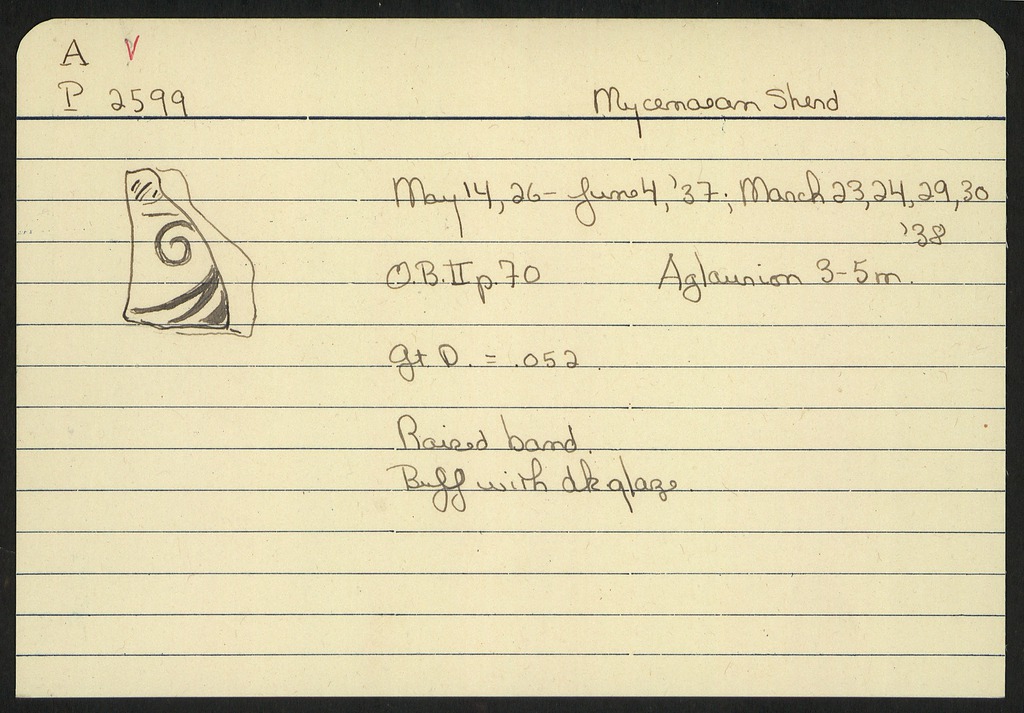 A V
P 2599
Mycenaean Sherd
May 14, 26 - June 4, '37; March 23, 24, 29, 30
'38
O.B. II p. 70 Aglaurion 3-5m.
gt D. = .052
Raised band.
Buff with dk glaze.